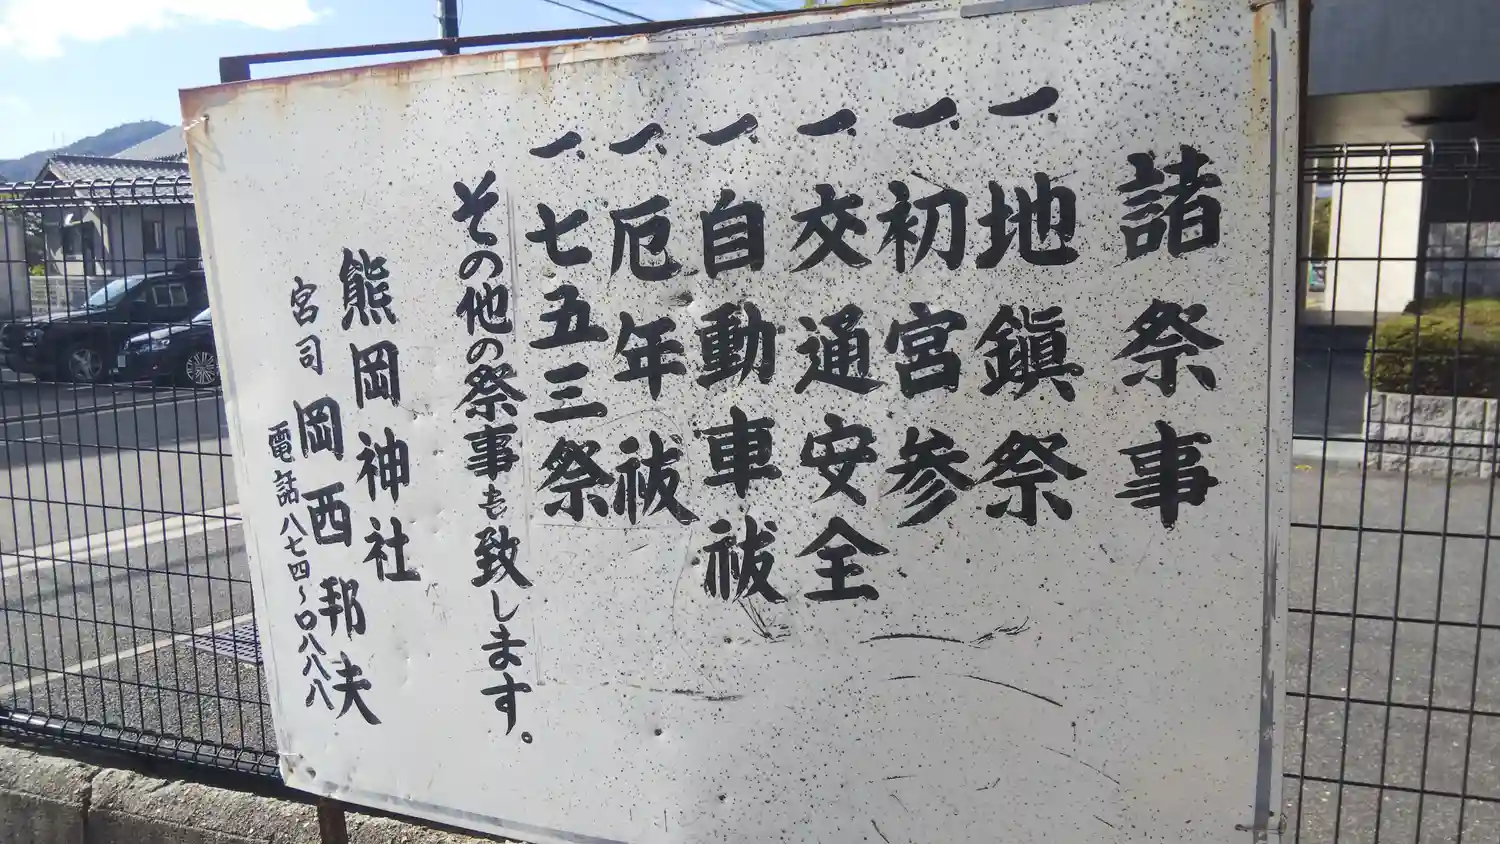 諸祭事
一、地鎭祭
一、初宮参
一、交通安全
一、自動車祓
一、厄年祓
一、七五三祭
その他の祭事も致します。
熊岡神社
宮司 岡西邦夫
電話八七四~０八八八